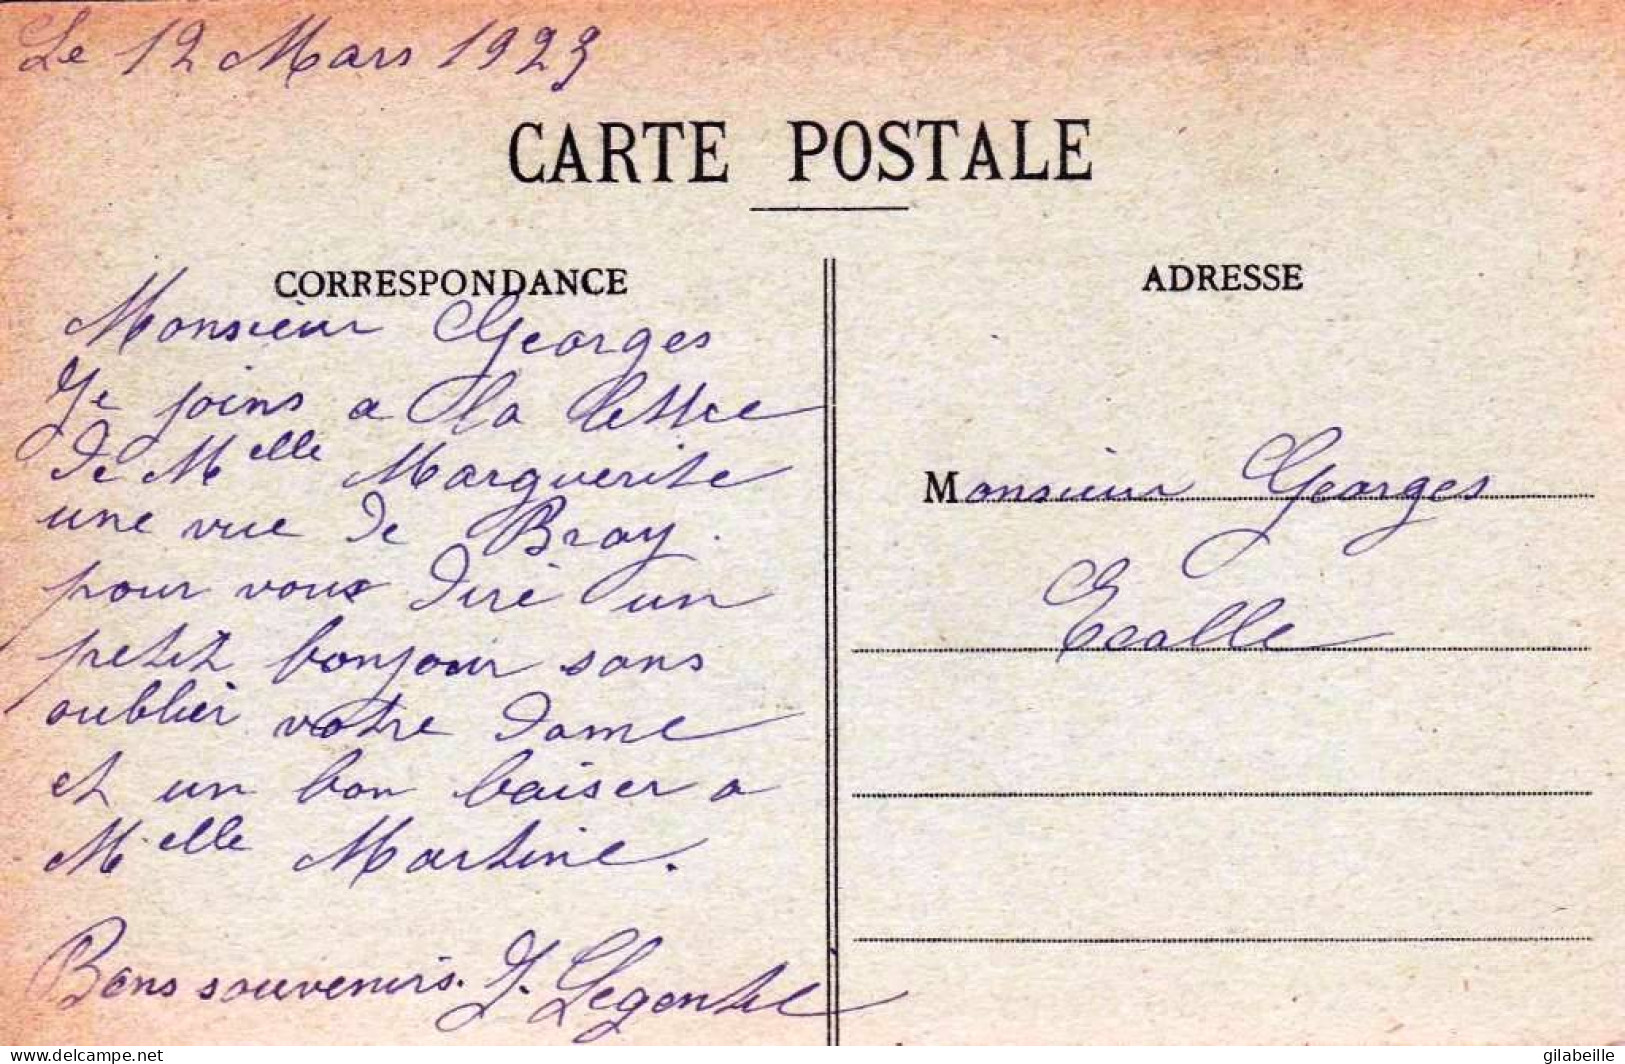 Le 12 Mars 1923
CARTE POSTALE
CORRESPONDANCE
Monsieur Georges
Je joins a la lettre
de Melle Marguerite
une vue de Bray.
pour vous dire un
petit bonjour sans
oublier votre dame
et un bon baiser a
Melle Martine.
Bons souvenirs. J. Legentil
ADRESSE
Monsieur Georges
Ecalle
delcampe.net
gilabeille